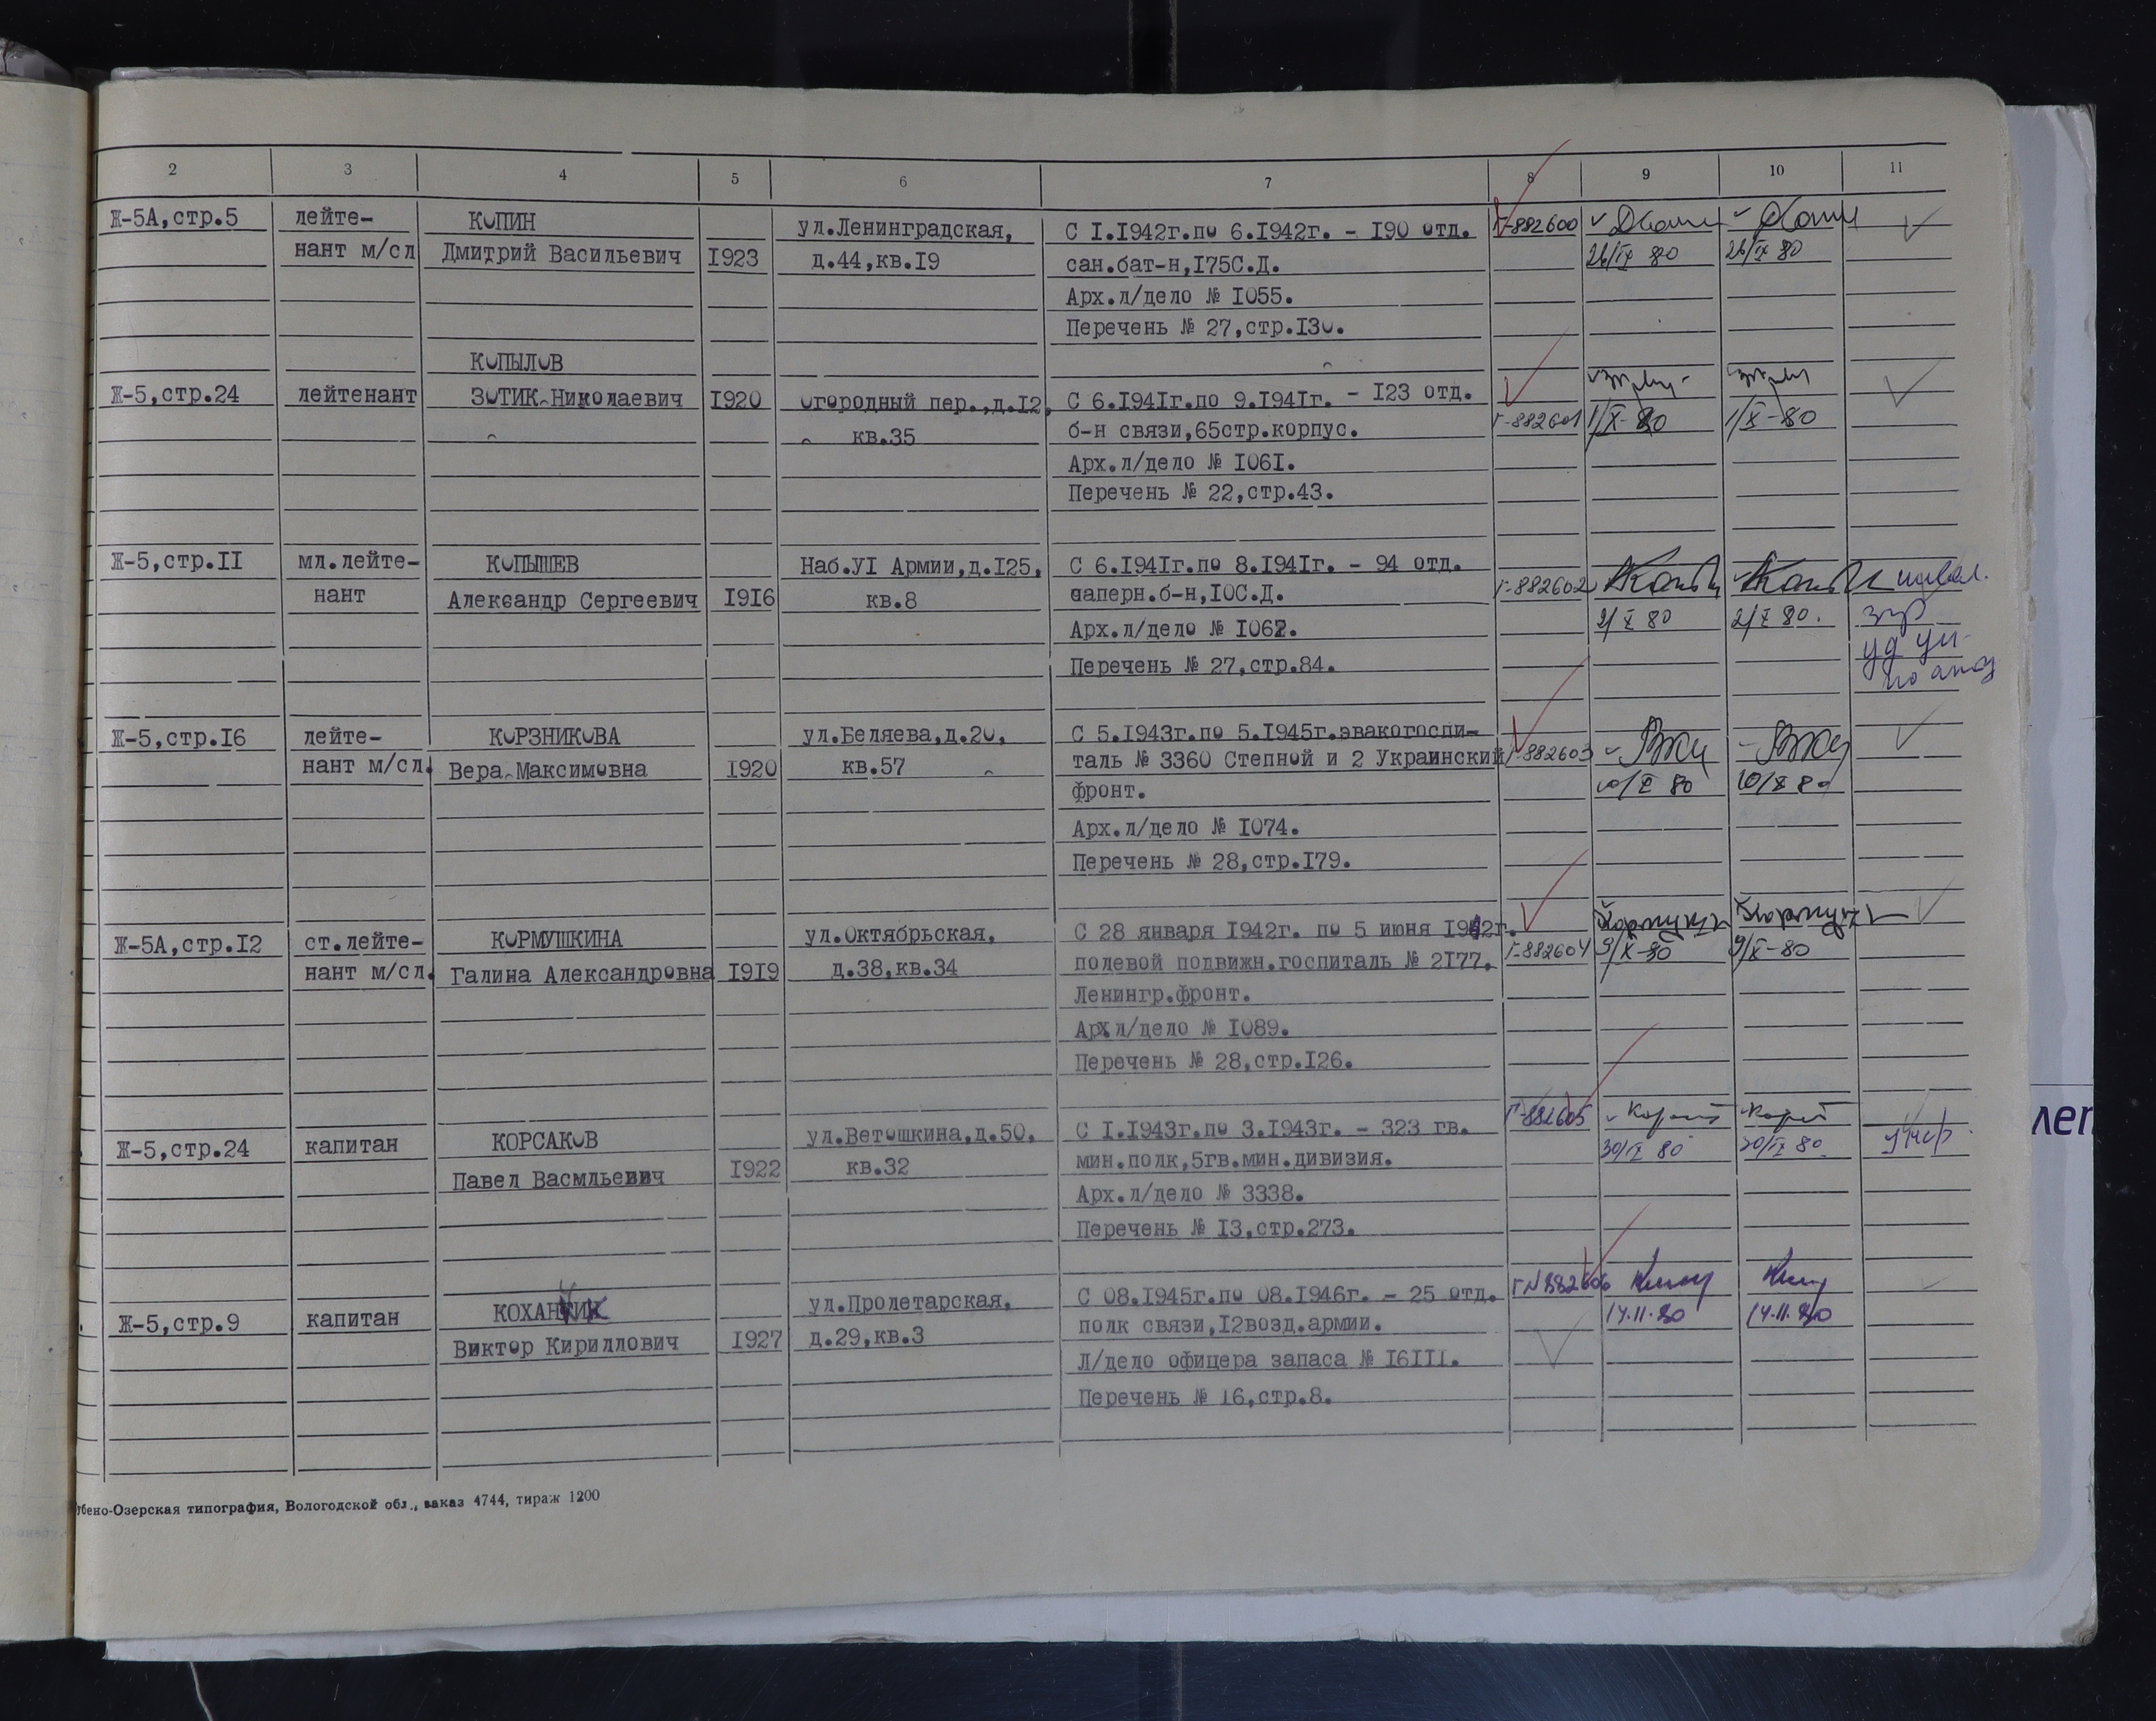 2 3 4 5 6 7 8 9 10 11
Ж-5А,стр.5 лейте- КОПИН ул.Ленинградская, С I.I942г.по 6.I942г. - I90 отд. Г-882600
нант м/сл Дмитрий Васильевич I923 д.44,кв.I9 сан.бат-н,I75С.Д. 26/IX 80 26/IX 80
Арх.л/дело № I055.
Перечень № 27,стр.I30.
КОПЫЛОВ
Ж-5,стр.24 лейтенант ЗОТИК Николаевич I920 Огородный пер.,д.I2, С 6.I94Iг.по 9.I94Iг. - I23 отд.
кв.35 б-н связи,65стр.корпус. Г-882601 1/X-80 1/X-80
Арх.л/дело № I06I.
Перечень № 22,стр.43.
Ж-5,стр.II мл.лейте- КОПЫШЕВ Наб.УI Армии,д.I25, С 6.I94Iг.по 8.I94Iг. - 94 отд.
нант Александр Сергеевич I9I6 кв.8 саперн.б-н,I0С.Д. Г-882602
Арх.л/дело № I062. 2/X 80 2/X 80.
Перечень № 27,стр.84.
Ж-5,стр.I6 лейте- КОРЗНИКОВА ул.Беляева,д.20, С 5.I943г.по 5.I945г.эвакогоспи-
нант м/сл. Вера Максимовна I920 кв.57 таль № 3360 Степной и 2 Украинский Г-882603
фронт. 10/X 80 10/X 80
Арх.л/дело № I074.
Перечень № 28,стр.I79.
Ж-5А,стр.I2 ст.лейте- КОРМУШКИНА ул.Октябрьская, С 28 января I942г. по 5 июня I942г.
нант м/сл. Галина Александровна I9I9 д.38,кв.34 полевой подвижн.госпиталь № 2I77. Г-882604 9/X-80 9/X-80
Ленингр.фронт.
Арх л/дело № I089.
Перечень № 28,стр.I26.
Ж-5,стр.24 капитан КОРСАКОВ ул.Ветошкина,д.50, С I.I943г.по 3.I943г. - 323 гв. Г-882605
Павел Васмльевич I922 кв.32 мин.полк,5гв.мин.дивизия. 30/IX 80
Арх.л/дело № 3338.
Перечень № I3,стр.273.
Ж-5,стр.9 капитан ул.Пролетарская, С 08.I945г.по 08.I946г. - 25 отд. Г№882606
Виктор Кириллович I927 д.29,кв.3 полк связи,I2возд.армии. 14.11.80 14.11.80
Л/дело офицера запаса № I6III.
Перечень № 16,стр.8.
бено-Озерская типография, Вологодской обл., заказ 4744, тираж 1200